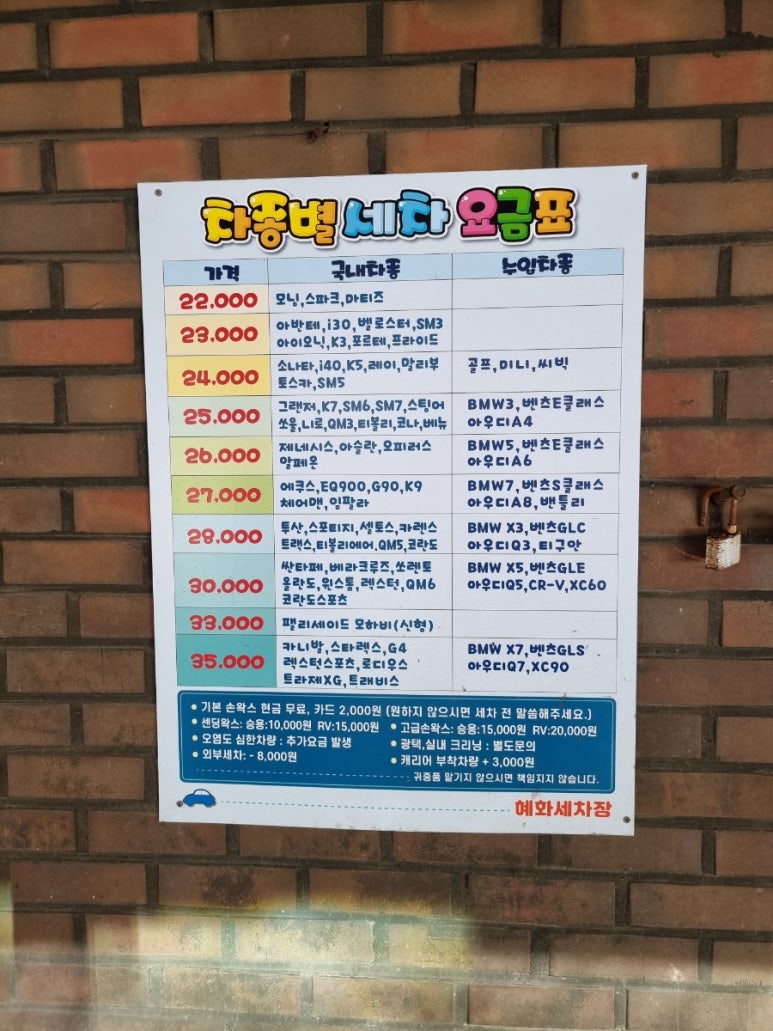 차종별 세차 요금표
가격 국내차종 수입차종
22,000 모닝,스파크,마티즈
23,000 아반떼,i30,벨로스터,SM3
아이오닉,K3,포르테,프라이드
24,000 소나타,i40,K5,레이,말리부 골프,미니,씨빅
토스카,SM5
25,000 그랜저,K7,SM6,SM7,스팅어 BMW3,벤츠E클래스
쏘울,니로,QM3,티볼리,코나,베뉴 아우디A4
26,000 제네시스,아슬란,오피러스 BMW5,벤츠E클래스
알페온 아우디A6
27,000 에쿠스,EQ900,G90,K9 BMW7,벤츠S클래스
체어맨,임팔라 아우디A8,밴틀리
28,000 투산,스포티지,셀토스,카렌스 BMW X3,벤츠GLC
트랙스,티볼리에어,QM5,코란도 아우디Q3,티구안
30,000 싼타페,베라크루즈,쏘렌토 BMW X5,벤츠GLE
올란도,윈스톰,렉스턴,QM6 아우디Q5,CR-V,XC60
코란도스포츠
33,000 팰리세이드 모하비(신형)
35,000 카니발,스타렉스,G4 BMW X7,벤츠GLS
렉스턴스포츠,로디우스 아우디Q7,XC90
트라제XG,트래버스
• 기본 손왁스 현금 무료, 카드 2,000원 (원하지 않으시면 세차 전 말씀해주세요.)
• 센딩왁스: 승용:10,000원 RV:15,000원 • 고급손왁스: 승용:15,000원 RV:20,000원
• 오염도 심한차량 : 추가요금 발생 • 광택,실내 크리닝 : 별도문의
• 외부세차: - 8,000원 • 캐리어 부착차량 + 3,000원
귀중품 맡기지 않으시면 책임지지 않습니다.
혜화세차장